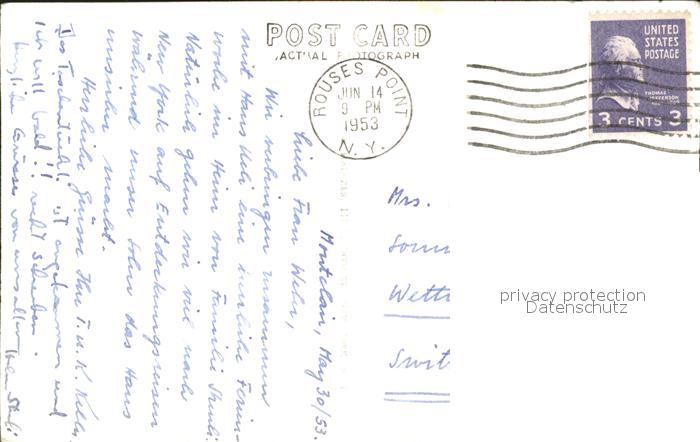 POST CARD
ACTUAL PHOTOGRAPH
ROUSES POINT
JUN 14
9 PM
1953
N.Y.
UNITED
STATES
POSTAGE
THOMAS
JEFFERSON
3 CENTS 3
Montclair, May 30/53.
Liebe Frau Weber,
Wir verbringen zusammen
mit Hans Ueli eine herrliche Ferien-
woche im Heim von Familie
Natürlich gehen wir viel nach
New York auf Entdeckungsreisen
während unser Sohn das Haus
unsicher macht.
Herzliche Grüsse Ihre T. u. K. Keller
Das ist angekommen und
Ich will bald!! recht schreiben.
Herzliche Grüsse von uns allen
Mrs.
Wett
Swit
privacy protection
Datenschutz